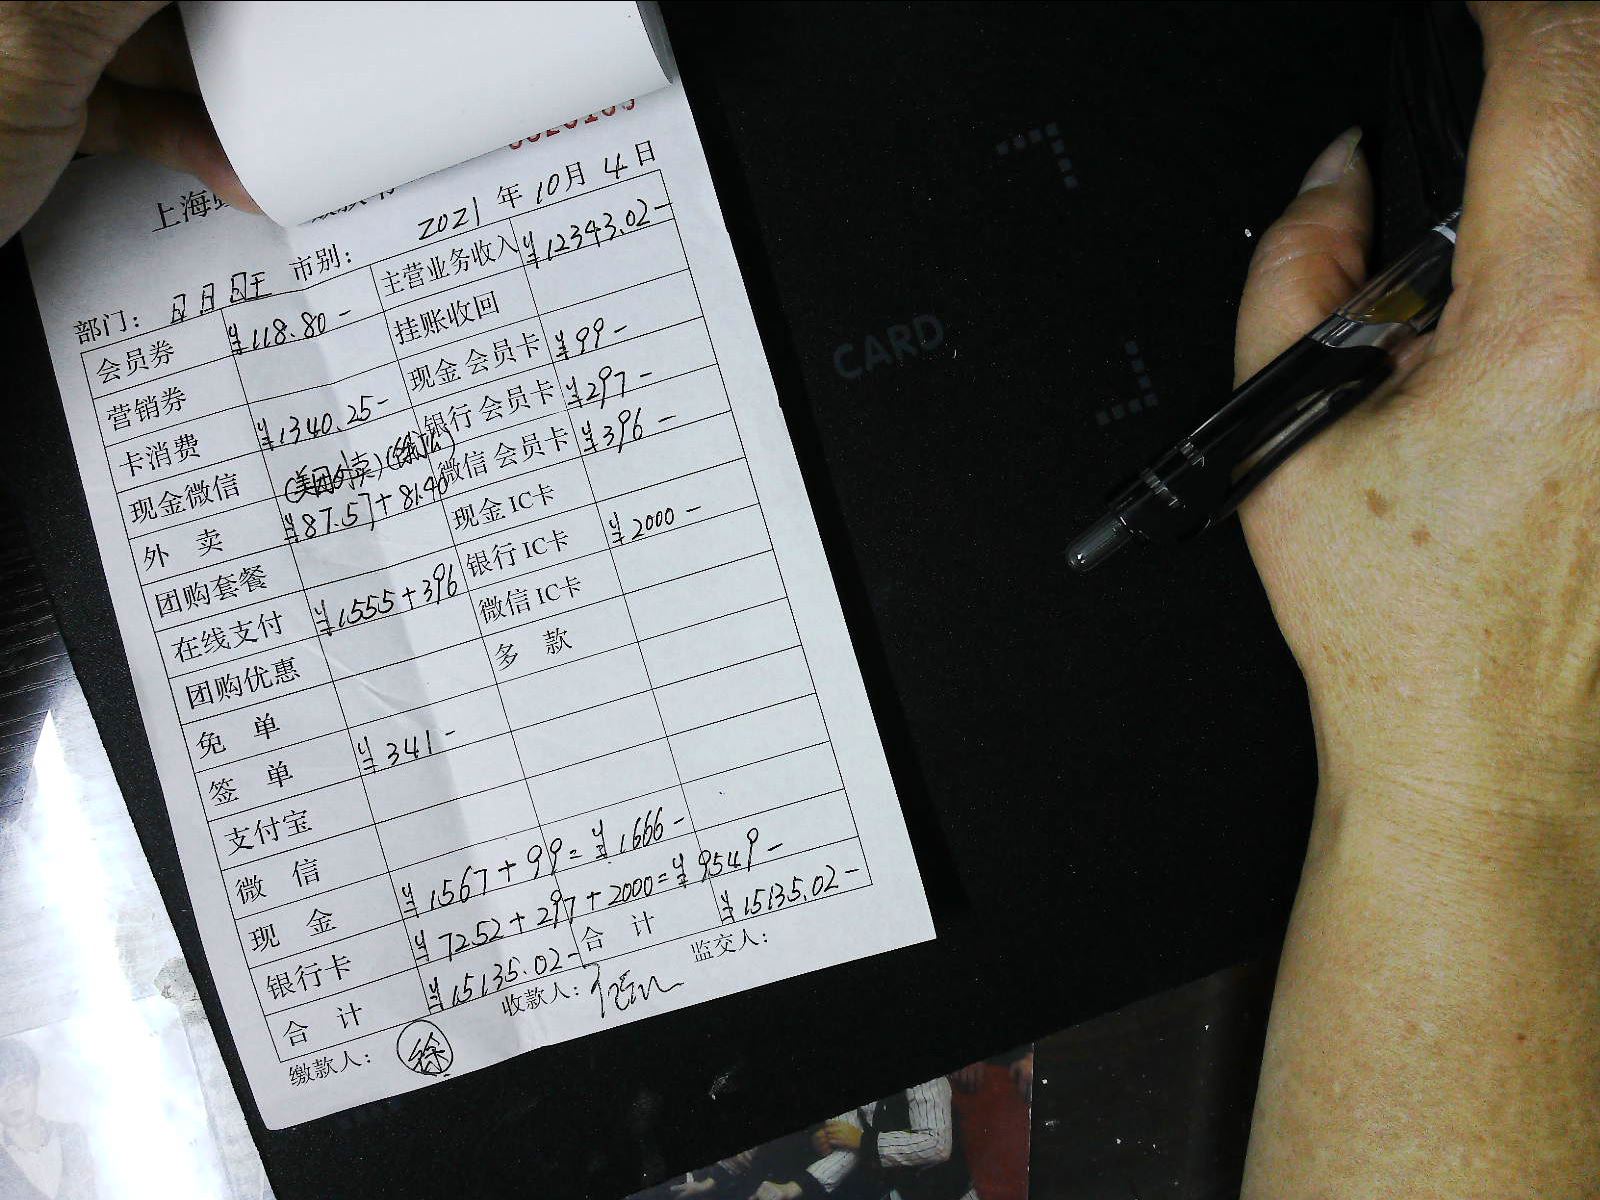 上海
2021年10月4日
部门: 市别:
会员券 ¥118.80- 主营业务收入 ¥12343.02-
营销券 挂账收回
卡消费 ¥1340.25- 现金会员卡 ¥99-
现金微信 (美团外卖) 银行会员卡 ¥297-
外卖 ¥87.57+81.40 微信会员卡 ¥396-
团购套餐 现金IC卡
在线支付 ¥1555+396 银行IC卡 ¥2000-
团购优惠 微信IC卡
免单 多款
签单 ¥341-
支付宝
微信
现金 ¥1567+99=¥1666-
银行卡 ¥7252+297+2000=¥9549-
合计 ¥15135.02- 合计 ¥15135.02-
缴款人: 徐 收款人: 监交人:
CARD